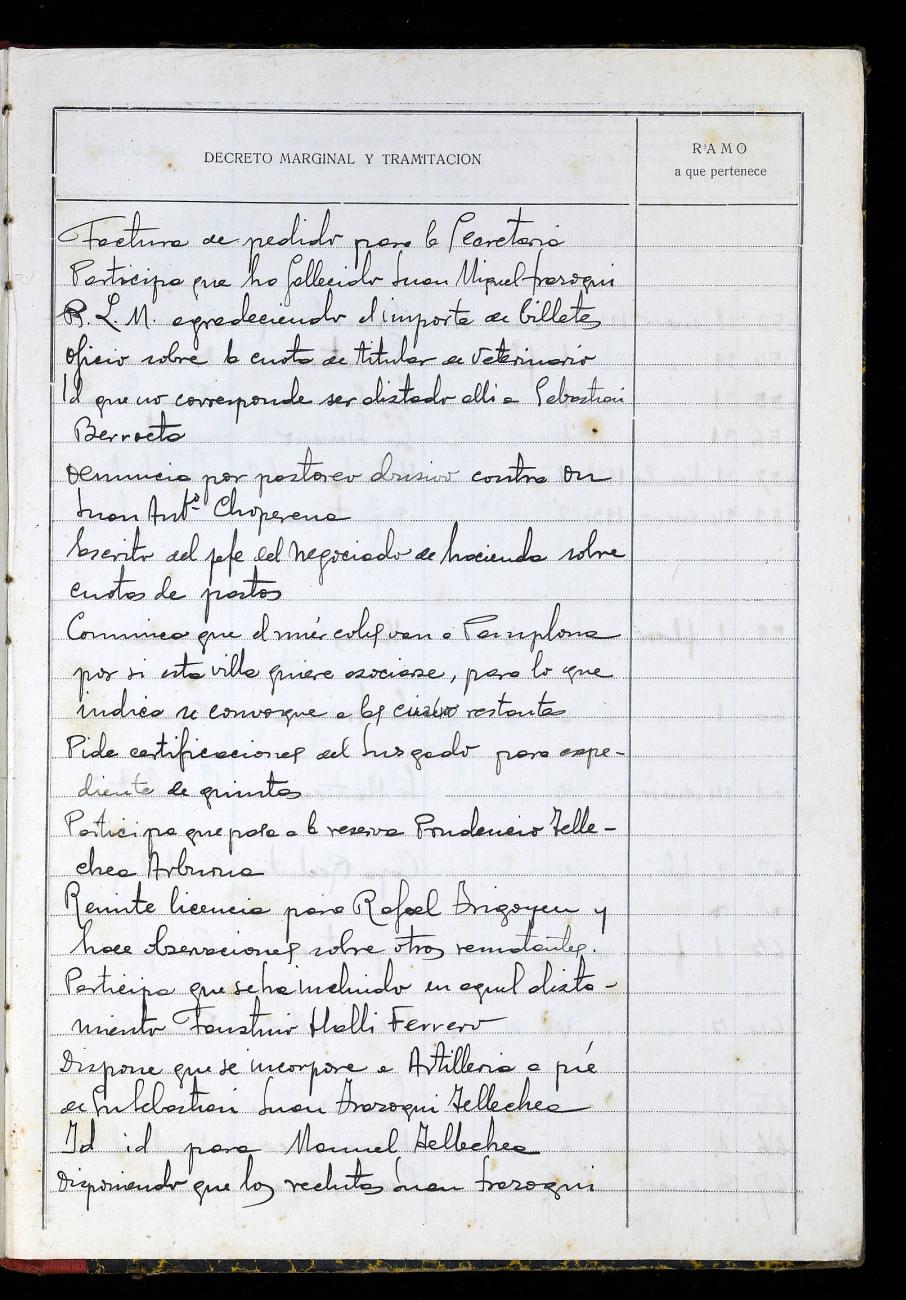 DECRETO MARGINAL Y TRAMITACION
RAMO
a que pertenece
Factura de pedido para la Secretaria
Participa que ha fallecido Juan Miguel Irazoqui
B. L. M. agradeciendo el importe de billetes
Oficio sobre la cuota de titular de Veterinario
Id que no corresponde ser alistado alli a Sebastian
Berroeta
Denuncia por pastoreo abusivo contra Dn
Juan Antº Choperena
Escrito del jefe del Negociado de hacienda sobre
cuotas de pastos
Comunica que el miércoles van a Pamplona
por si esta villa quiere asociarse, para lo que
indica se convoque a las cuatro restantes
Pide certificaciones del Juzgado para expe-
diente de quintas
Participa que pasa a la reserva Prudencio Telle-
chea
Remite licencia para Rafael Irigoyen y
hace observaciones sobre otros rematantes.
Participa que se ha incluido en aquel alista-
miento Faustino Halli Ferrero
Dispone que se incorpore a Artilleria a pié
de San Sebastian Juan Irazoqui Tellechea
Id id para Manuel Tellechea
Disponiendo que los reclutas Juan Irazoqui